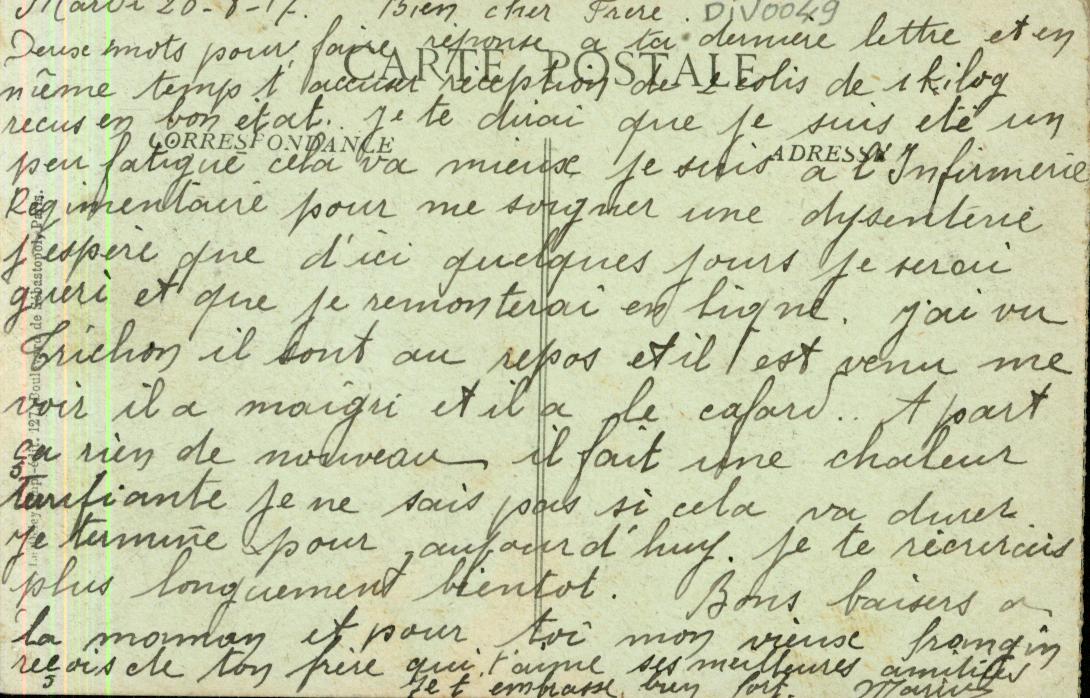 Mardi 20-8-17. Bien cher Frere. DIV0049
Deux mots pour faire réponse a ta derniere lettre et en
CARTE POSTALE
même temp t'accuser réception de 2 colis de 1 kilog
recus en bon etat. Je te dirai que je suis eté un
CORRESPONDANCE
ADRESSE
peu fatigué cela va mieux je suis a l'Infirmerie
Régimentaire pour me soigner une dysenterie
j'espère que d'ici quelques jours je serai
guéri et que je remonterai en ligne. j'ai vu
Trichon il sont au repos et il est venu me
voir il a maigri et il a le cafard.. A part
ça rien de nouveau il fait une chaleur
je ne sais pas si cela va durer
Je termine pour aujourd'huy. Je te récrirais
plus longuement bientot. Bons baisers a
la maman et pour toi mon vieux frangin
reçois de ton frère qui t'aime ses meilleures amitiés
Je t'embrasse bien fort.